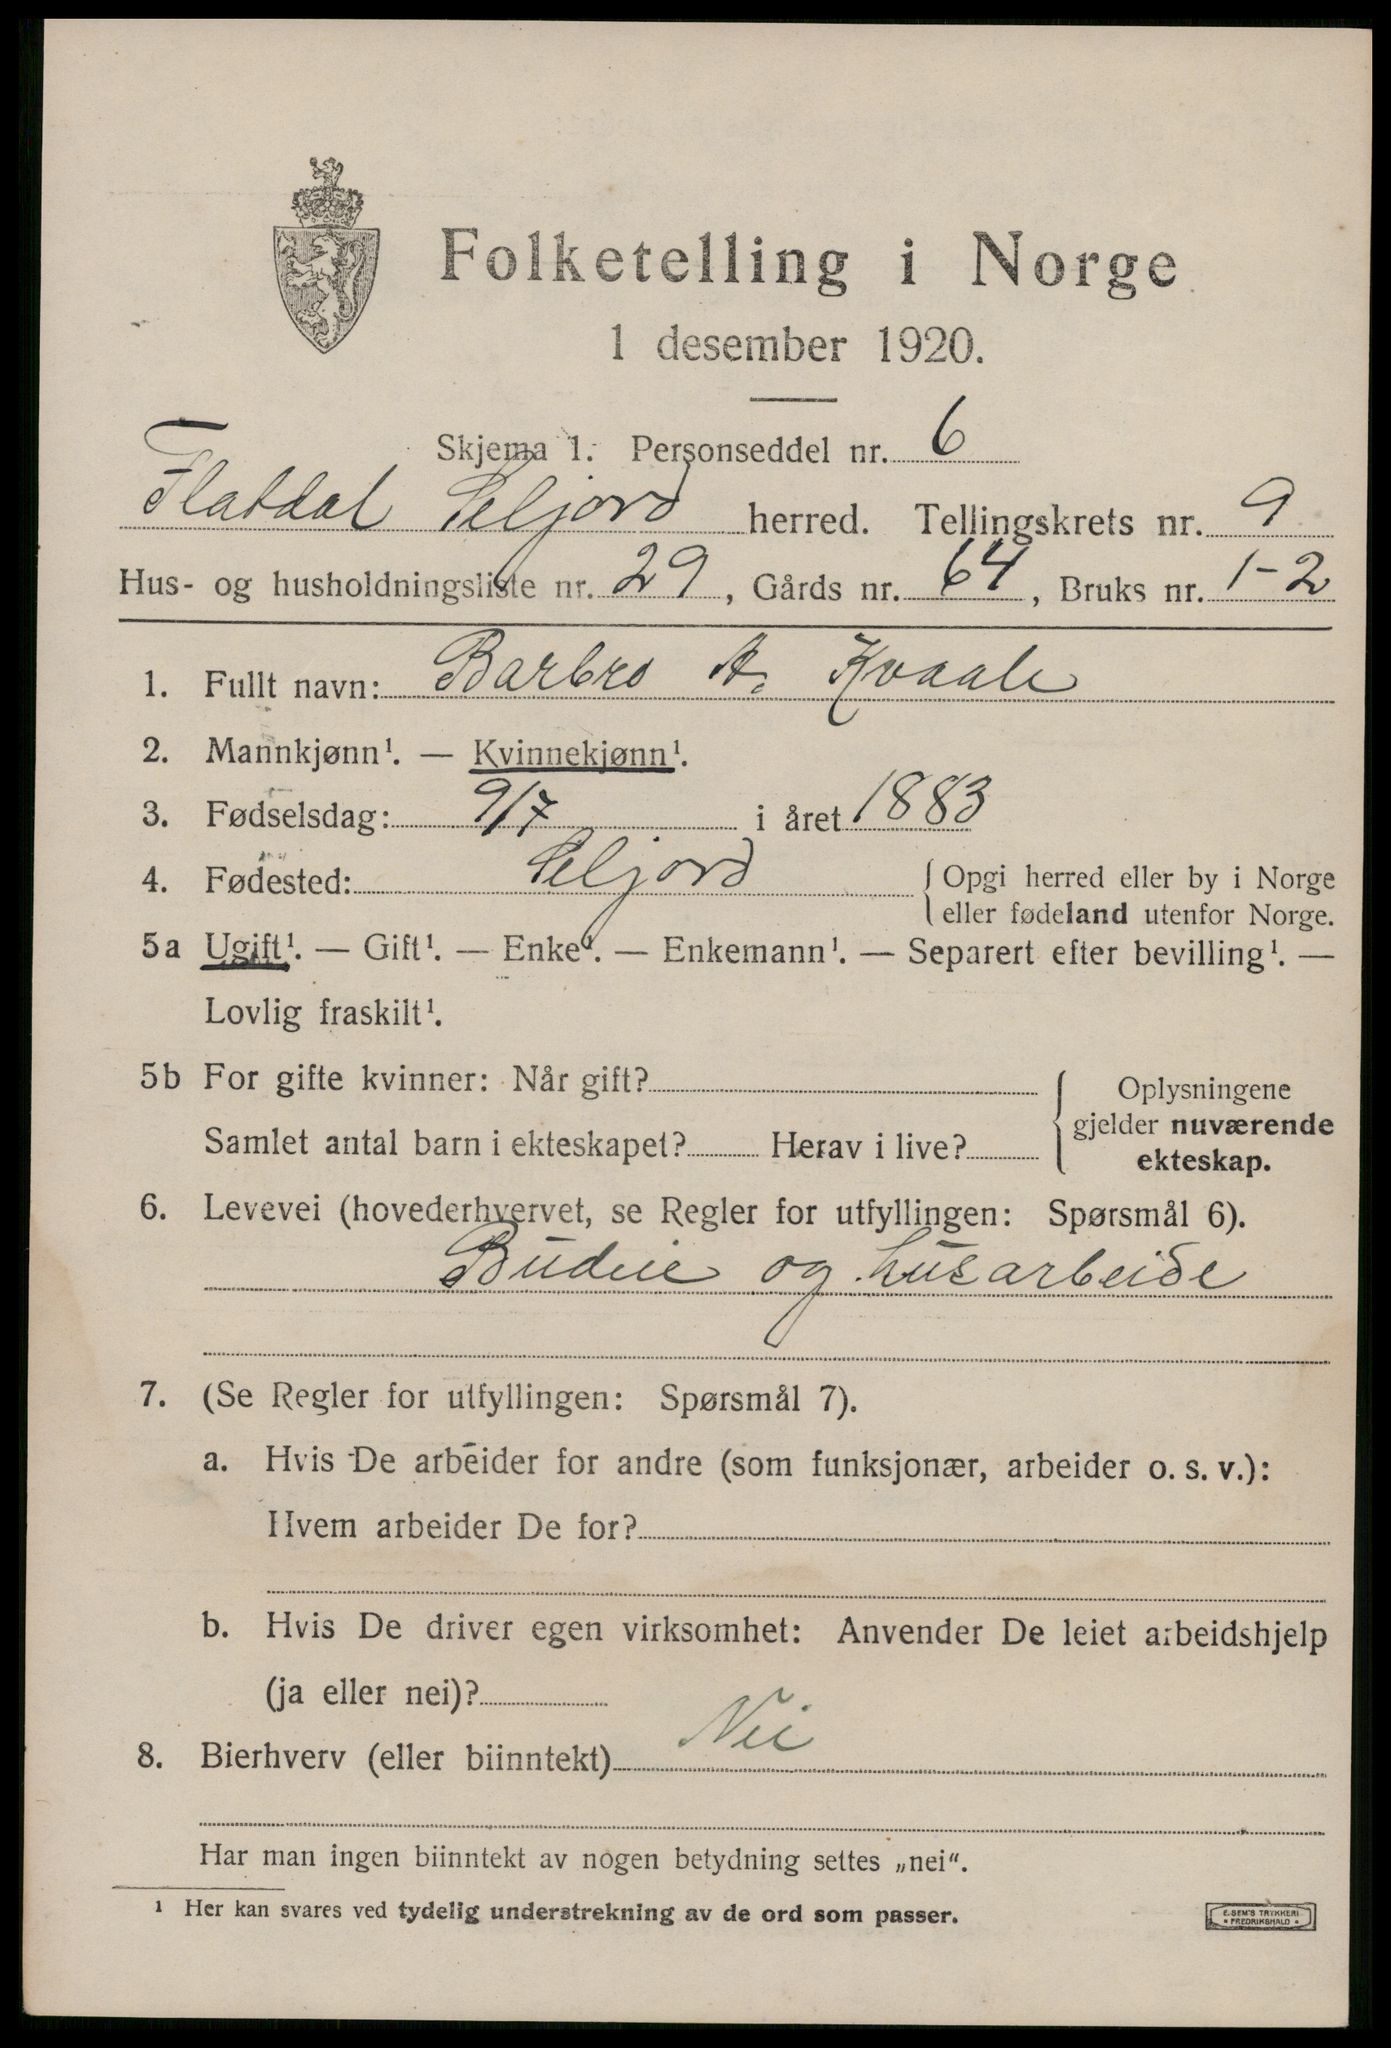 Folketelling i Norge
1 desember 1920.
Skjema 1. Personseddel nr. 6
Flatdal Seljord herred. Tellingskrets nr. 9
Hus- og husholdningsliste nr. 29, Gårds nr. 64, Bruks nr. 1-2
1. Fullt navn: Barbro A. Kvaale
2. Mannkjønn¹. — Kvinnekjønn¹.
3. Fødselsdag: 9/7 i året 1883
4. Fødested: Seljord { Opgi herred eller by i Norge
eller fødeland utenfor Norge.
5a Ugift¹. — Gift¹. — Enke¹. — Enkemann¹. — Separert efter bevilling¹. —
Lovlig fraskilt¹.
5b For gifte kvinner: Når gift?
Samlet antal barn i ekteskapet? Herav i live?
Oplysningene
gjelder nuværende
ekteskap.
6. Levevei (hovederhvervet, se Regler for utfyllingen: Spørsmål 6).
Budeie og husarbeide
7. (Se Regler for utfyllingen: Spørsmål 7).
a. Hvis De arbeider for andre (som funksjonær, arbeider o. s. v.):
Hvem arbeider De for?
b. Hvis De driver egen virksomhet: Anvender De leiet arbeidshjelp
(ja eller nei)?
8. Bierhverv (eller biinntekt) Nei
Har man ingen biinntekt av nogen betydning settes „nei“.
¹ Her kan svares ved tydelig understrekning av de ord som passer.
E. SEM'S TRYKKERI
* FREDRIKSHALD *